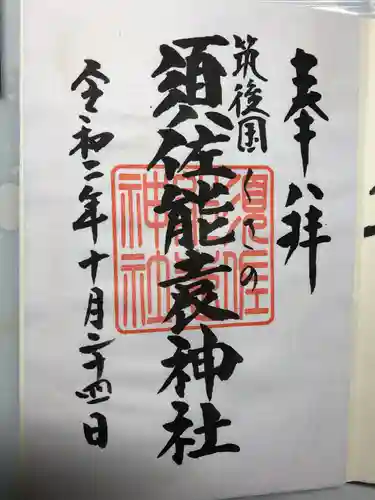 奉拝
筑後国くさの
須佐能袁神社
令和二年十月二十四日
須佐能袁神社